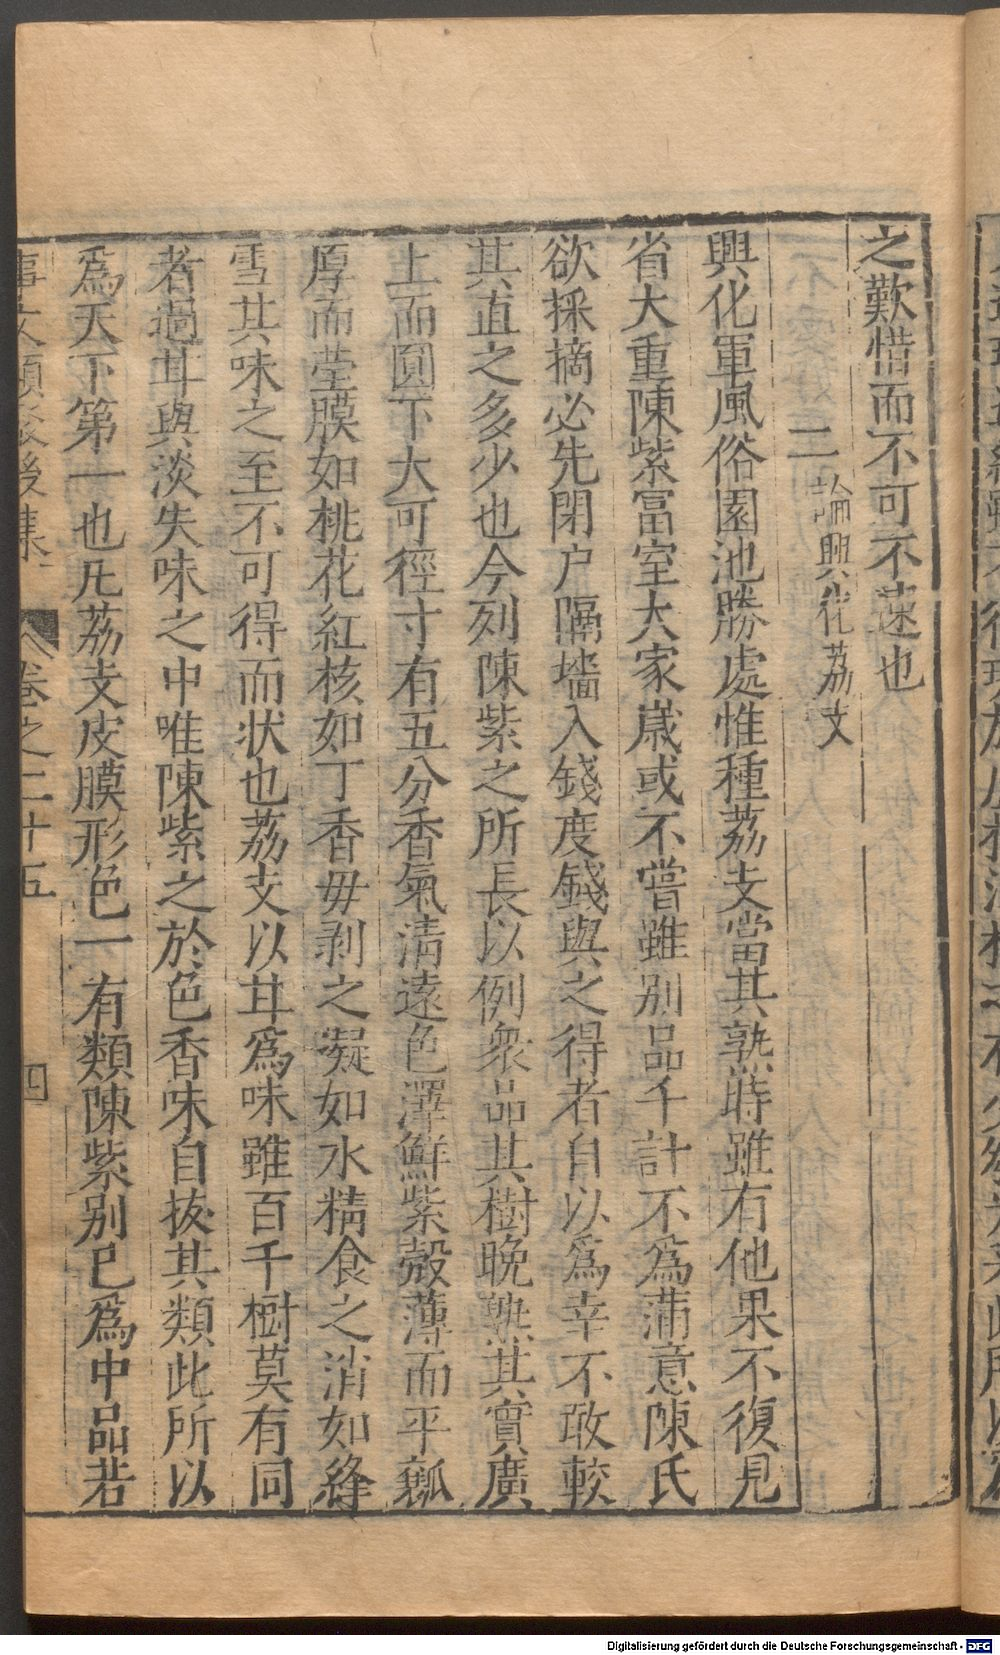 之歎惜而不可不遠也
二 論興化荔支
興化軍風俗園池勝處惟種荔支當其熟時雖有他果不復見
省大重陳紫富室大家歲或不嘗雖别品千計不為滿意陳氏
欲採摘必先閉户隔墻入錢度錢與之得者自以爲幸不敢較
其直之多少也今列陳紫之所長以例衆品其樹晚熟其實廣
上而圓下大可徑寸有五分香氣清遠色澤鮮紫殼薄而平瓤
厚而瑩膜如桃花紅核如丁香毋剥之凝如水精食之消如絳
雪其味之至不可得而状也荔支以甘爲味雖百千樹莫有同
者過甘與淡失味之中唯陳紫之於色香味自拔其類此所以
爲天下第一也凡荔支皮膜形色一有類陳紫别已爲中品若
事文類聚後集 卷之二十五 四
Digitalisierung gefördert durch die Deutsche Forschungsgemeinschaft - DFG